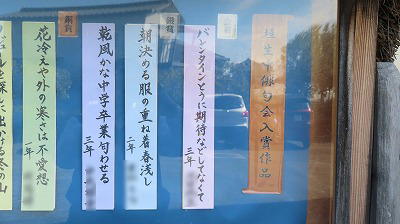 俳句会入賞作品
バレンタインとうに期待などしてなくて
三年
銀賞
朝決める服の重ね着春浅し
二年
乾風かな中学卒業匂わせる
三年
銅賞
花冷えや外の寒さは不愛想
一年